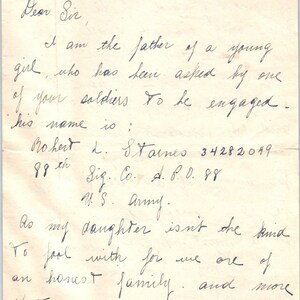 Dear Sir,
I am the father of a young
girl, who has been asked by one
of your soldiers to be engaged.
his name is:
Robert L. Starnes 34282099
98th Sig. Co. A.P.O. 98
U.S. Army.
As my daughter isn't the kind
to fool with for we are of
an honest family. and more